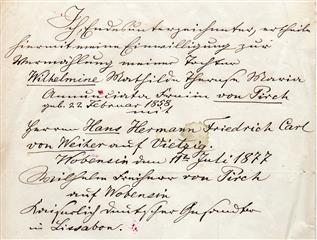 Ich Endesunterzeichneter, ertheile
hiermit meine Einwilligung zur
Vermählung meiner Tochter
Wilhelmine Mathilde Therese Maria
Annunciata Freiin von Pirch
geb. 22 Februar 1858
mit
Herrn Hans Hermann Friedrich Carl
von Weiher auf Vietzig.
Wobensin den 11ten Juli 1877
Wilhelm Freiherr von Pirch
auf Wobensin
Kaiserlich deutscher Gesandter
in Lissabon.